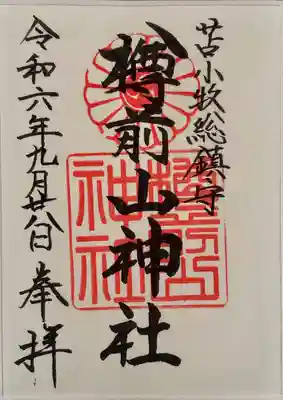 苫小牧総鎮守
樽前山神社
令和六年九月廿八日
奉拝
樽前山神社